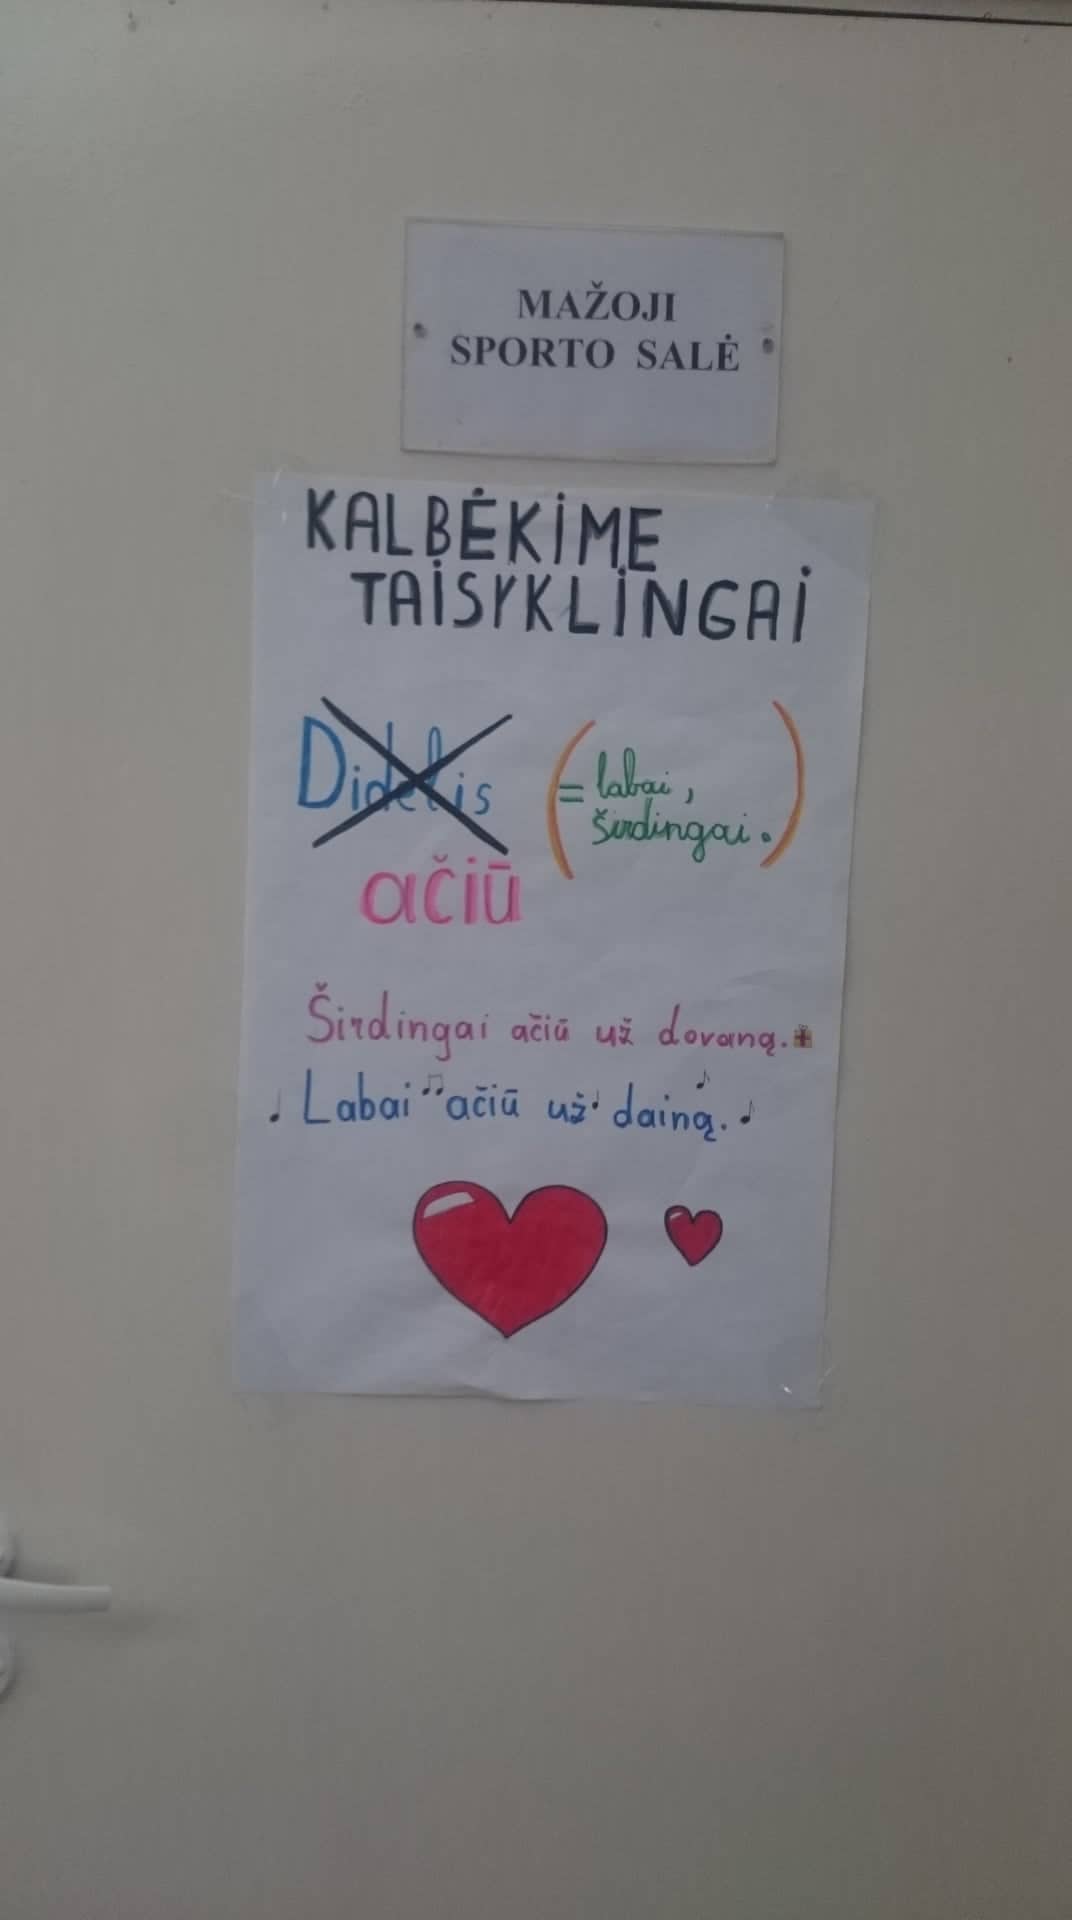 MAŽOJI
SPORTO SALĖ
KALBĖKIME
TAISYKLINGAI
Didelis (= labai,
širdingai.)
ačiū
Širdingai ačiū už dovaną.
Labai ačiū už dainą.